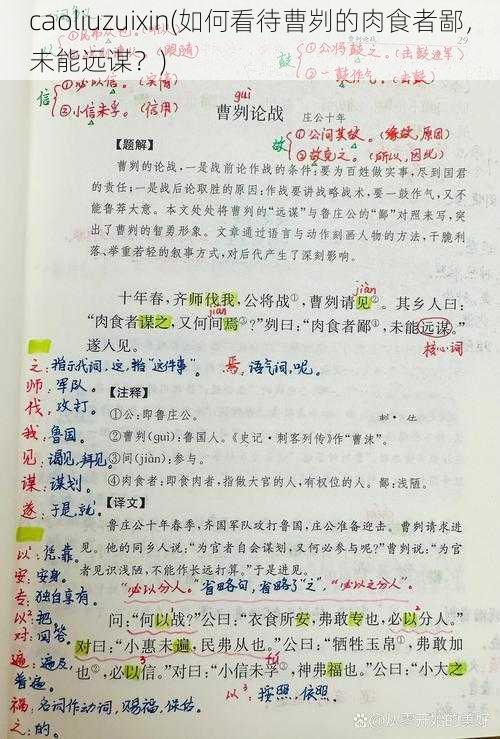 caoliuzuixin(如何看待曹刿的肉食者鄙,
未能远谋？)
29
②公将鼓之。(击鼓进军)
鼓
②一鼓作气。(击鼓)
信
①必以信。(实情)
②小信未孚。(信用)
guì
曹刿论战 庄公十年
故
①公问其故。(缘故,原因)
②故克之。(所以,因此)
【题解】
曹刿的论战,一是战前论作战的条件:要为百姓做实事,尽到国君
的责任;一是战后论取胜的原因:作战要讲战略战术,要一鼓作气,又不
能鲁莽大意。本文处处将曹刿的“远谋”与鲁庄公的“鄙”对照来写,突
出了曹刿的智勇形象。文章通过语言与动作刻画人物的方法,干脆利
落、举重若轻的叙事方式,对后代产生了深刻影响。
jiàn
十年春,齐师伐我,公将战①,曹刿请见②。其乡人曰:
jiàn
“肉食者谋之,又何间焉③?”刿曰:“肉食者鄙④,未能远谋。”
遂入见。
核心词
之:指示代词,这,指“这件事”。 焉,语气词,呢。
师:军队。
伐,攻打。
【注释】
①公:即鲁庄公。
我:鲁国。
②曹刿(guì):鲁国人。《史记·刺客列传》作“曹沫”。
见:谒见,拜见。
③间(jiàn):参与。
谋:谋划。
④肉食者:即食肉者,指做大官的人,有权位的人。鄙:浅陋。
遂:于是,就。
【译文】
鲁庄公十年春季,齐国军队攻打鲁国,庄公准备迎击。曹刿请求进
以¹:凭靠。
见。他的同乡人说:“为官者自会谋划,又何必参与呢?”曹刿说:“为官
安:安身。
者见识浅陋,不能作长远打算。”于是进见。
专:独自享有。
“必以分人。”省略句,省略了“之”,“必以之分人。”
以²:把.
问:“何以战?”公曰:“衣食所安,弗敢专也,必以分人。”
对:回答.
对曰:“小惠未遍,民弗从也。”公曰:“牺牲玉帛①,弗敢加
遍:遍及,
普遍。
fú
也②,必以信。”对曰:“小信未孚③,神弗福也。”公曰:“小大之
福,名词作动词,赐福,保佑.
以³:按照,依照.
之:的。
@从零开始的美好